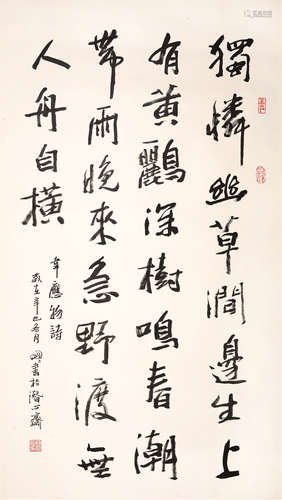 獨憐幽草澗邊生上
有黃鸝深樹鳴春潮
帶雨晚來急野渡無
人舟自橫
韋應物詩
歲在辛巳 月 書於潛心齋